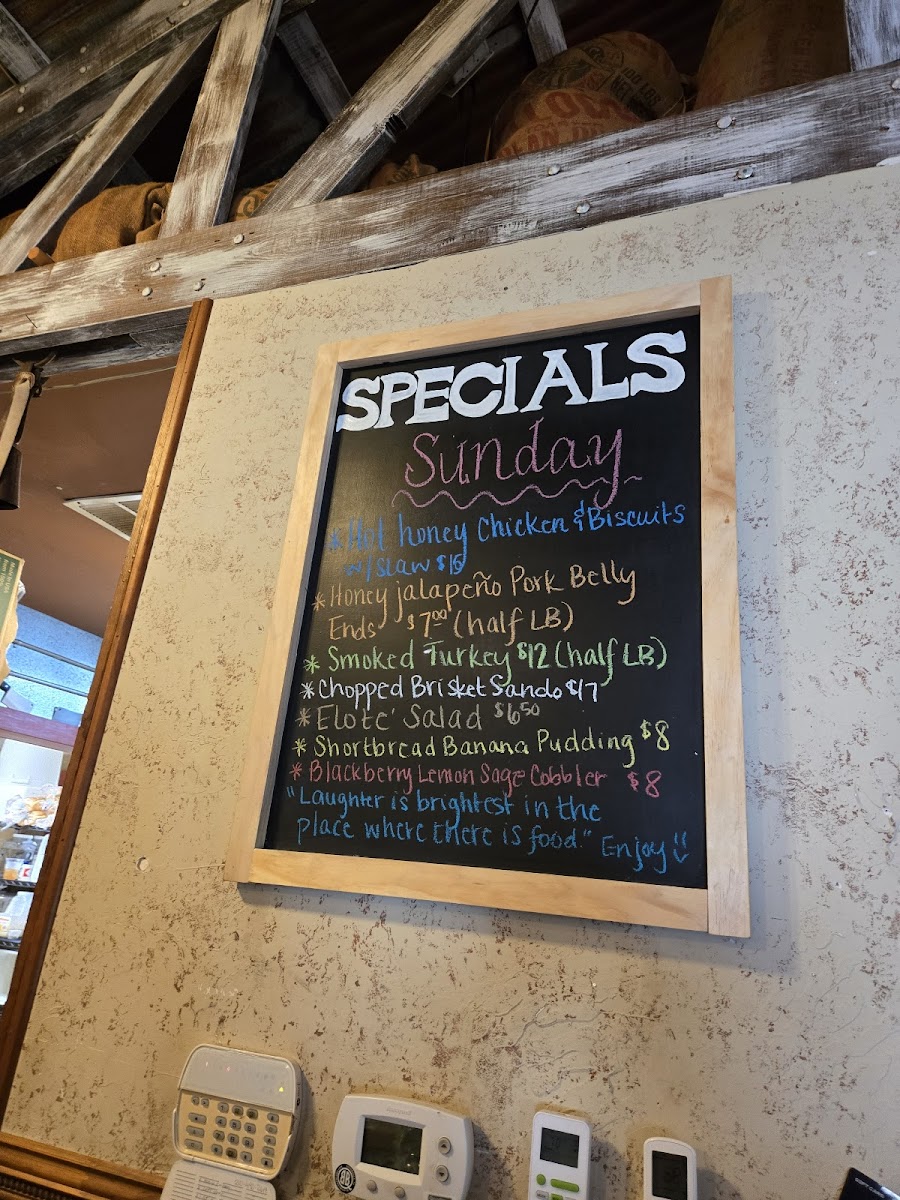 100 LBS
SPECIALS
Sunday
* Hot honey Chicken & Biscuits
w/ slaw $16
* Honey jalapeño Pork Belly
Ends $7⁰⁰ (half LB)
* Smoked Turkey $12 (half LB)
* Chopped Brisket Sando $17
* Elote' Salad $6⁵⁰
* Shortbread Banana Pudding $8
* Blackberry Lemon Sage Cobbler $8
"Laughter is brightest in the
place where there is food." Enjoy